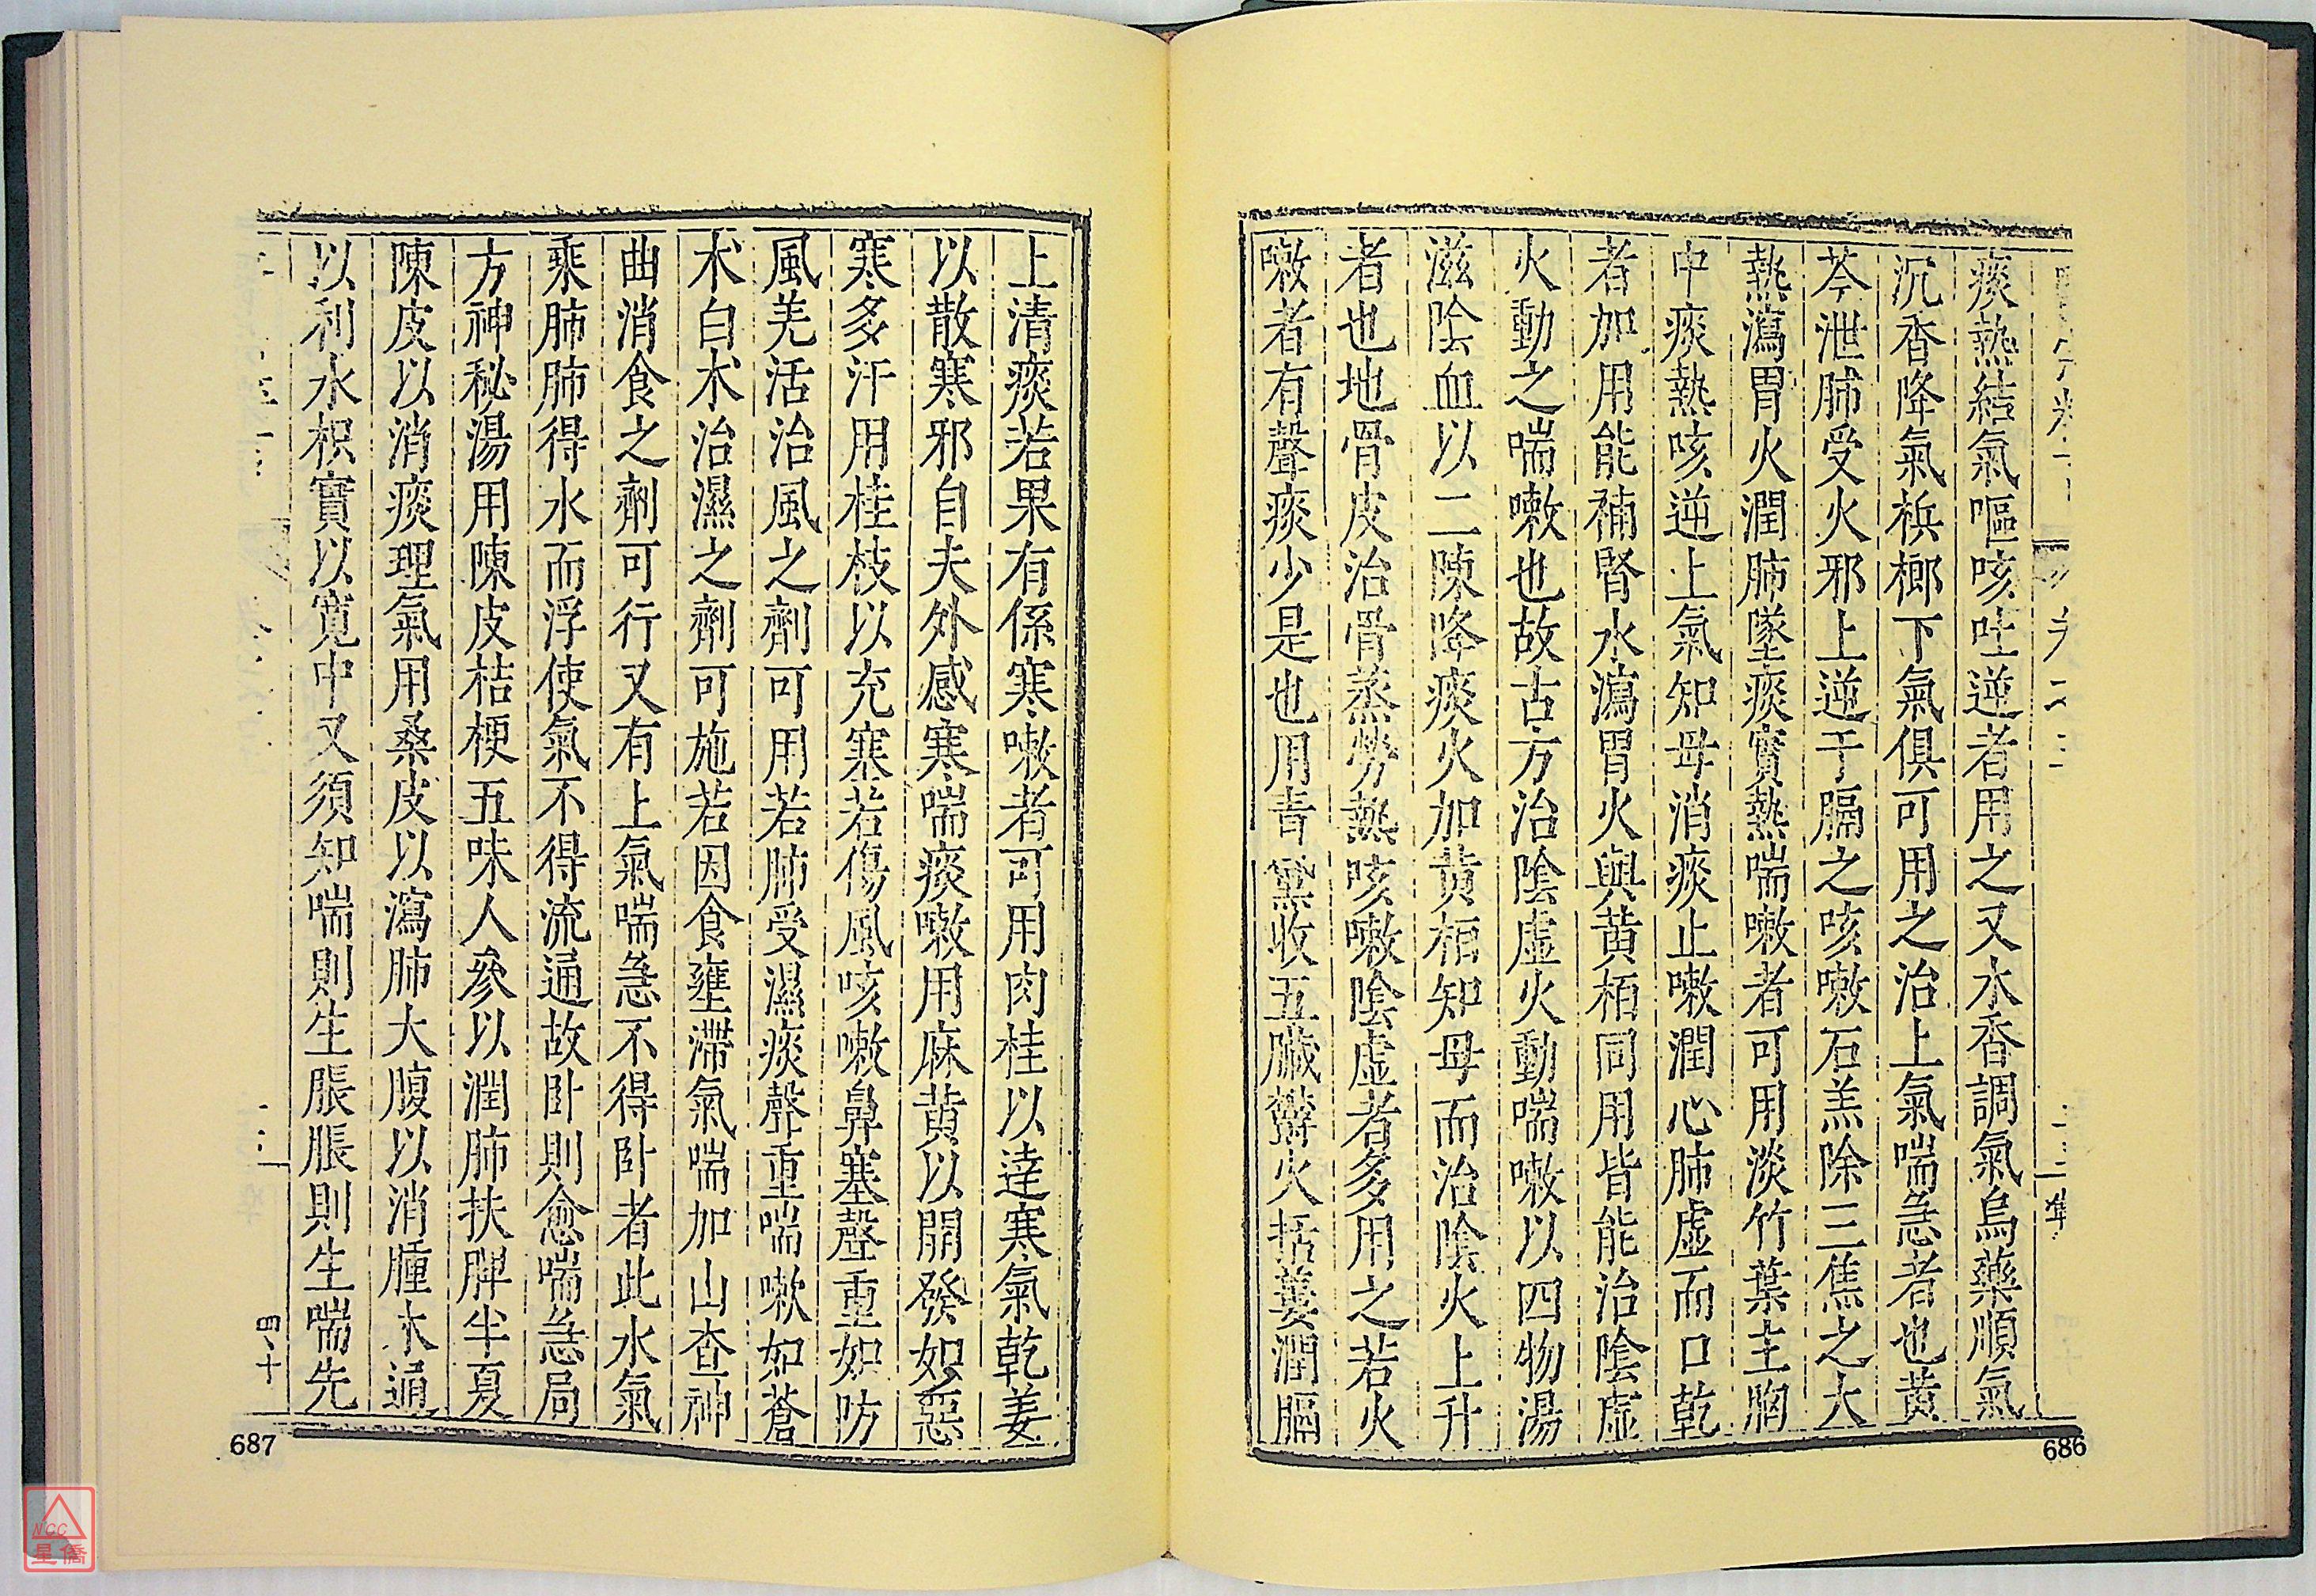 痰熱結氣嘔咳吐逆者用之又水香調氣烏藥順氣
沉香降氣梹榔下氣俱可用之治上氣喘急者也黄
芩泄肺受火邪上逆于膈之咳嗽石羔除三焦之大
熱瀉胃火潤肺墜痰實熱喘嗽者可用淡竹葉主胸
中痰熱咳逆上氣知母消痰止嗽潤心肺虚而口乾
者加用能補腎水瀉胃火與黄栢同用皆能治陰虚
火動之喘嗽也故古方治陰虚火動喘嗽以四物湯
滋陰血以二陳降痰火加黄栢知母而治陰火上升
者也地骨皮治骨蒸勞熱咳嗽陰虚者多用之若火
嗽者有聲痰少是也用青黛收五臟欝火括蔞潤膈
686
上清痰若果有係寒嗽者可用肉桂以逹寒氣乾姜
以散寒邪自夫外感寒寒喘痰嗽用麻黄以開發如惡
寒多汗用桂枝以充塞若傷風咳嗽鼻塞聲重如防
風羌活治風之劑可用若肺受濕痰聲重喘嗽如蒼
术白术治濕之劑可施若因食壅滯氣喘加山查神
曲消食之劑可行又有上氣喘急不得卧者此水氣
乘肺肺得水而浮使氣不得流通故卧則愈喘急局
方神秘湯用陳皮桔梗五味人參以潤肺扶脾半夏
陳皮以消痰理氣用桑皮以瀉肺大腹以消腫木通
以利水枳實以寬中又須知喘則生脹脹則生喘先
四十
687
NCC
星僑